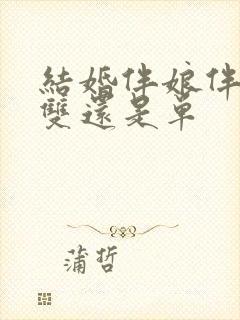 結婚伴娘伴
雙還是單
蒲哲